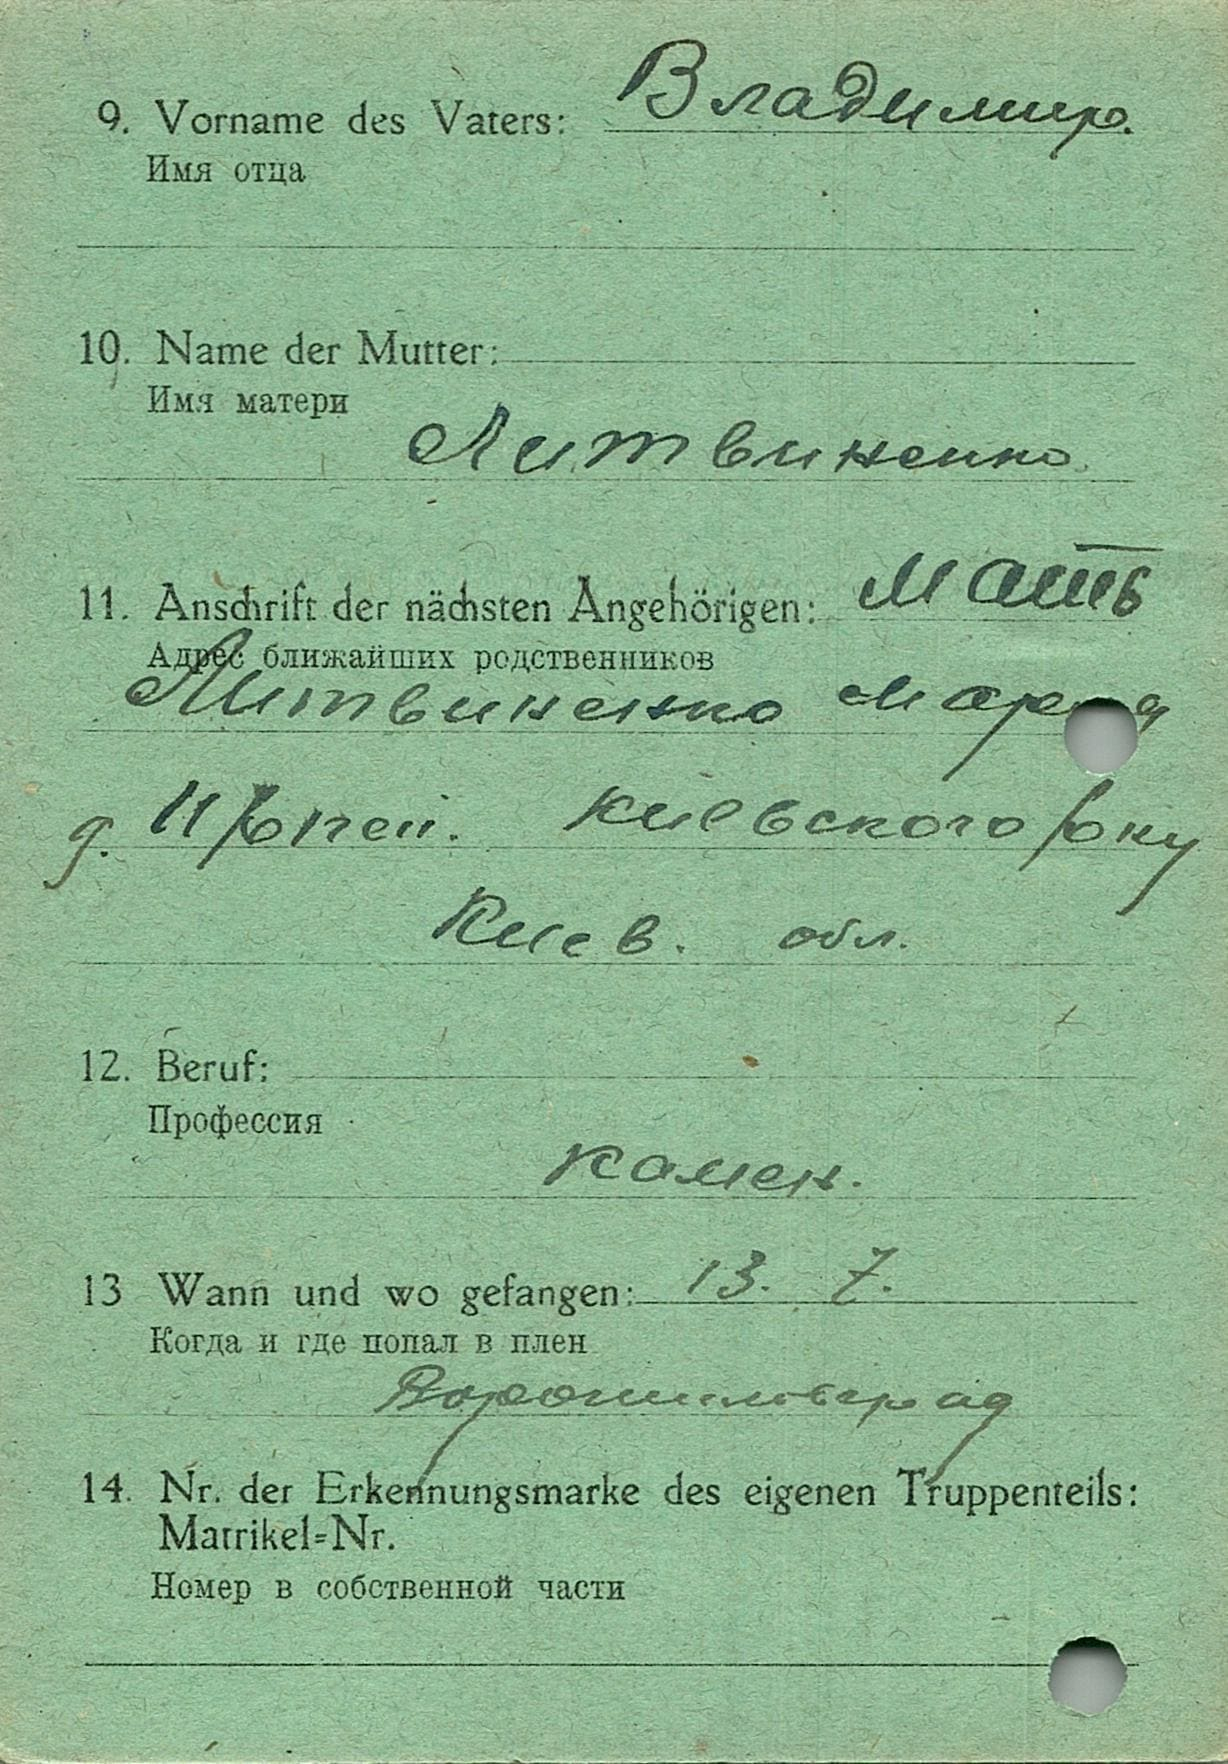 9. Vorname des Vaters: Владимир.
Имя отца
10. Name der Mutter:
Имя матери
Литвиненко
11. Anschrift der nächsten Angehörigen: мать
Адрес ближайших родственников
Литвиненко мария
д. Ирпень. киевского
Киев. обл.
12. Beruf:
Профессия
камен.
13 Wann und wo gefangen: 13. 7.
Когда и где попал в плен
Ворошиловград
14. Nr. der Erkennungsmarke des eigenen Truppenteils:
Matrikel=Nr.
Номер в собственной части